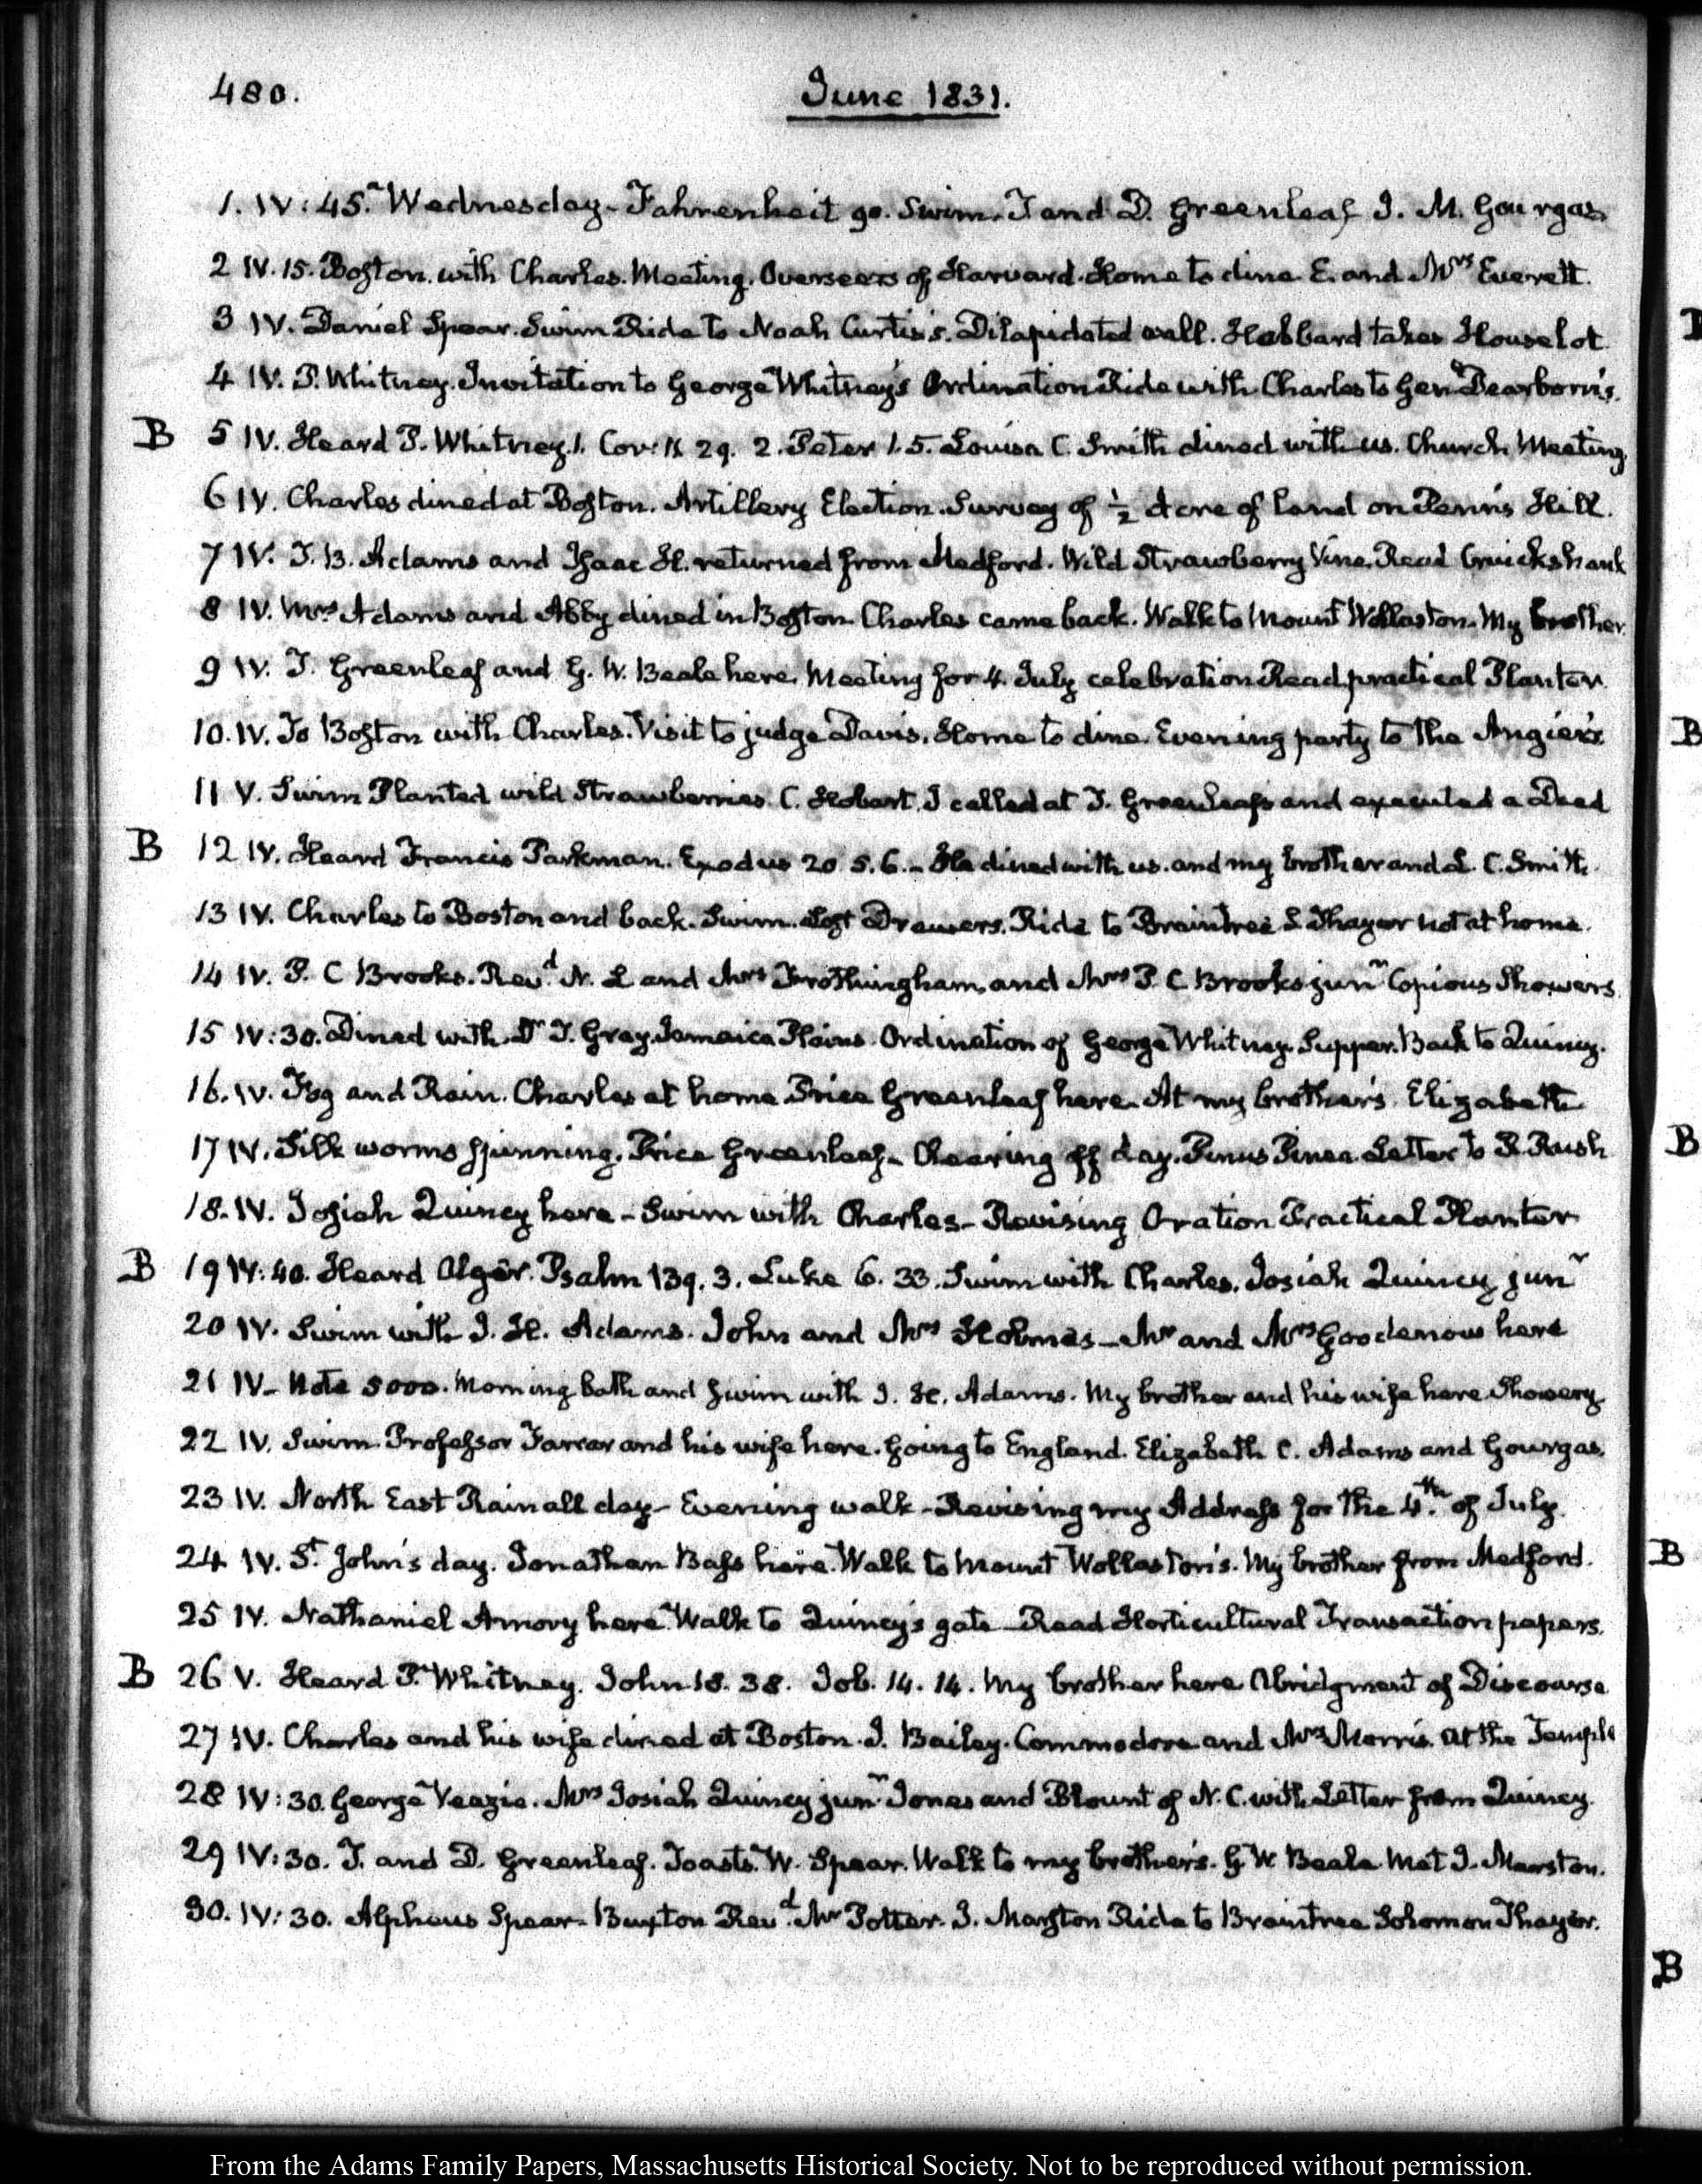 480.
June 1831.
1. IV: 45. Wednesday - Fahrenheit 90. Swim. T and D. Greenleaf J. M. Gourgas
2 IV. 15. Boston with Charles. Meeting. Overseers of Harvard. Home to dine E. and Mrs Everett.
3 IV. Daniel Spear. Swim Ride to Noah Curtis's. Dilapidated wall. Hubbard takes Houselot
4 IV. P. Whitney. Invitation to George Whitney's Ordination Ride with Charles to Genl Dearborn's.
B 5 IV. Heard P. Whitney. 1. Cor: 11 29. 2. Peter 1. 5. Louisa C. Smith dined with us. Church Meeting
6 IV. Charles dined at Boston. Artillery Election. Survey of ½ Acre of land on Penn's Hill.
7 IV. T. B. Adams and Isaac H. returned from Medford. Wild Strawberry Vine. Read Cruickshank
8 IV. Mrs Adams and Abby dined in Boston Charles came back. Walk to Mount Wollaston. My brother.
9 IV. T. Greenleaf and G. W. Beale here. Meeting for 4. July celebration Read practical Planter.
10. IV. To Boston with Charles. Visit to judge Davis. Home to dine. Evening party to the Angier's.
11 V. Swim Planted wild Strawberries. C. Hobart. I called at T. Greenleaf's and executed a Deed
B 12 IV. Heard Francis Parkman. Exodus 20. 5. 6. - He dined with us. and my brother and L. C. Smith.
13 IV. Charles to Boston and back. Swim. Lost Drawers. Ride to Braintree S Thayer not at home.
14 IV. P. C Brooks. Revd. N. L and Mrs Frothingham, and Mrs P. C Brooks junr Copious Showers.
15 IV: 30. Dined with Dr T. Gray Jamaica Plains. Ordination of George Whitney. Supper. Back to Quincy.
16. IV. Fog and Rain. Charles at home Price Greenleaf here. At my brother's. Elizabeth
17 IV. Silk worms spinning. Price Greenleaf. Clearing off day. Pinus Pinea Letter to R. Rush
18. IV. Josiah Quincy here - Swim with Charles - Revising Oration Practical Planter
B 19 IV: 40. Heard Alger. Psalm 139. 3. Luke 6. 33. Swim with Charles. Josiah Quincy junr
20 IV. Swim with I. H. Adams. John and Mrs Holmes - Mr and Mrs Goodenow here
21 IV - Note 5000. Morning bath and swim with I. H. Adams. My brother and his wife here. Showery
22 IV. Swim. Professor Farrar and his wife here. Going to England. Elizabeth C. Adams and Gourgas.
23 IV. North East Rain all day - Evening walk - Revising my Address for the 4th. of July.
24 IV. St. John's day. Jonathan Bass here. Walk to Mount Wollaston's. My brother from Medford.
25 IV. Nathaniel Amory here. Walk to Quincy's gate - Read Horticultural Transaction papers.
B 26 V. Heard P. Whitney. John 18. 38. Job. 14. 14. My brother here Abridgment of Discourse
27 IV. Charles and his wife dined at Boston. J. Bailey. Commodore and Mrs Morris. at the Temple
28 IV: 30. George Veazie. Mrs Josiah Quincy junr Jones and Blount of N. C. with Letter from Quincy.
29 IV: 30. T. and D. Greenleaf. Toasts. W. Spear. Walk to my brother's. G W Beale Met J. Marston.
30. IV: 30. Alpheus Spear - Buxton Revd. Mr Potter. J. Marston Ride to Braintree Solomon Thayer.
B
B
B
B
From the Adams Family Papers, Massachusetts Historical Society. Not to be reproduced without permission.